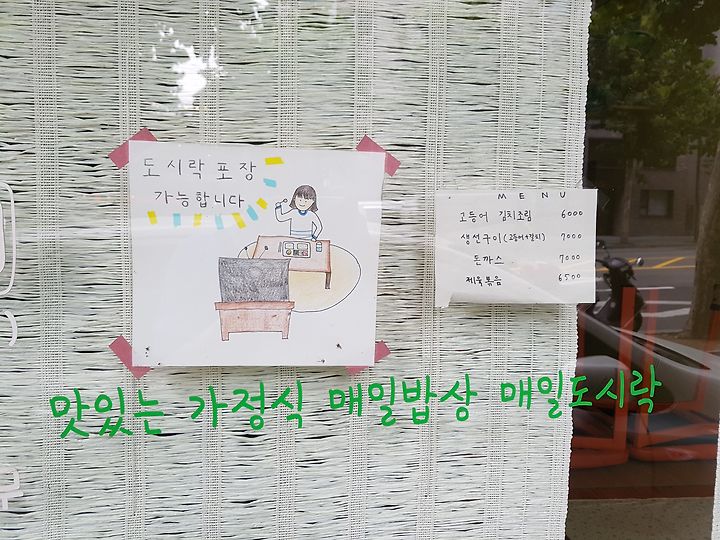 도시락 포장
가능합니다
MENU
고등어 김치조림 6000
생선구이(고등어+갈치) 7000
돈까스 7000
제육볶음 6500
맛있는 가정식 매일밥상 매일도시락